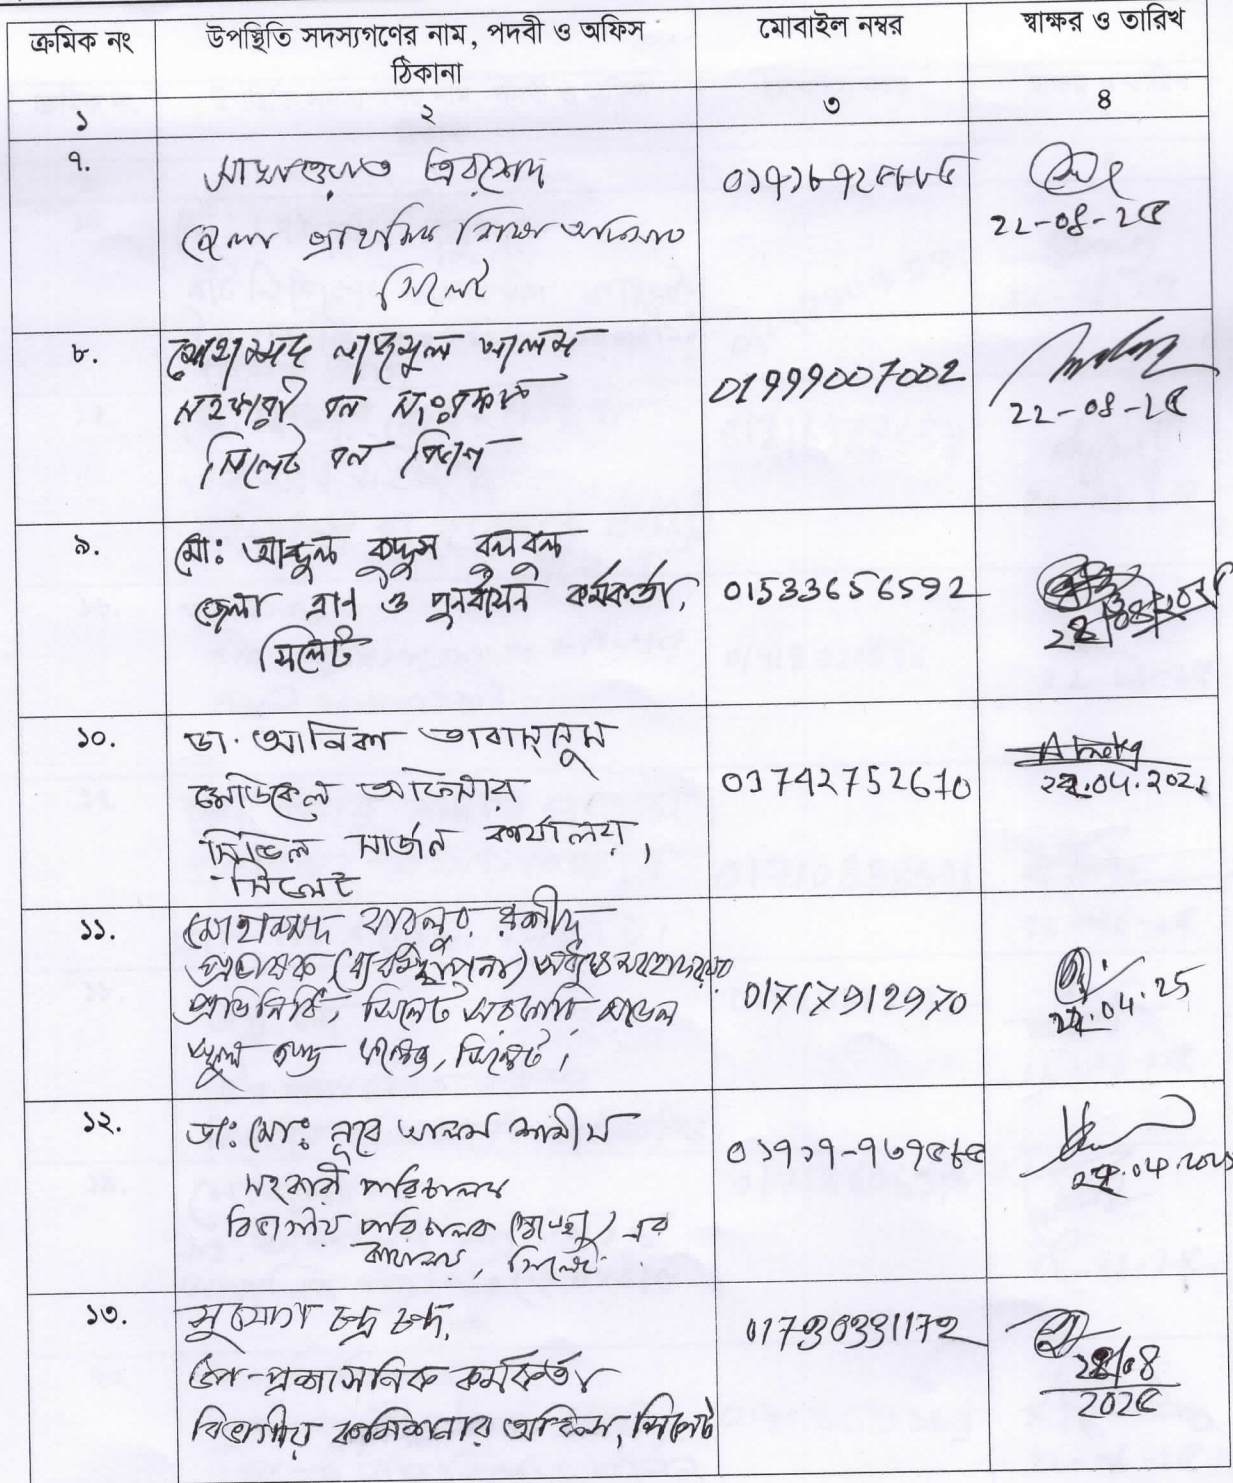 ক্রমিক নং
উপস্থিতি সদস্যগণের নাম, পদবী ও অফিস
ঠিকানা
মোবাইল নম্বর
স্বাক্ষর ও তারিখ
১
২
৩
৪
৭.
সাখাওয়াত এরশেদ
জেলা প্রাথমিক শিক্ষা অফিসার
সিলেট
২২-০৪-২৫
৮.
মোহাম্মদ নাজমুল আলম
সহকারী বন সংরক্ষক
সিলেট বন বিভাগ
01999007002
২২-০৪-২৫
৯.
মো: আব্দুল কুদ্দুস বুলবুল
জেলা ত্রাণ ও পুনর্বাসন কর্মকর্তা,
সিলেট
01533656592
১০.
ডা. আনিকা তাবাসসুম
মেডিকেল অফিসার
সিভিল সার্জন কার্যালয়,
সিলেট
01742752610
22.04.2022
১১.
মোহাম্মদ রশীদ
প্রভাষক (ব্যবস্থাপনা)
প্রতিনিধি, সিলেট সরকারি মডেল
স্কুল এন্ড কলেজ, সিলেট।
01717912970
22.04.25
১২.
ডা: মো: নূরে আলম শামীম
সহকারী পরিচালক
বিভাগীয় পরিচালক (স্বাস্থ্য) এর
কার্যালয়, সিলেট
১৩.
চন্দ্র চন্দ,
উপ-প্রশাসনিক কর্মকর্তা
বিভাগীয় কমিশনার অফিস, সিলেট
২০২৫